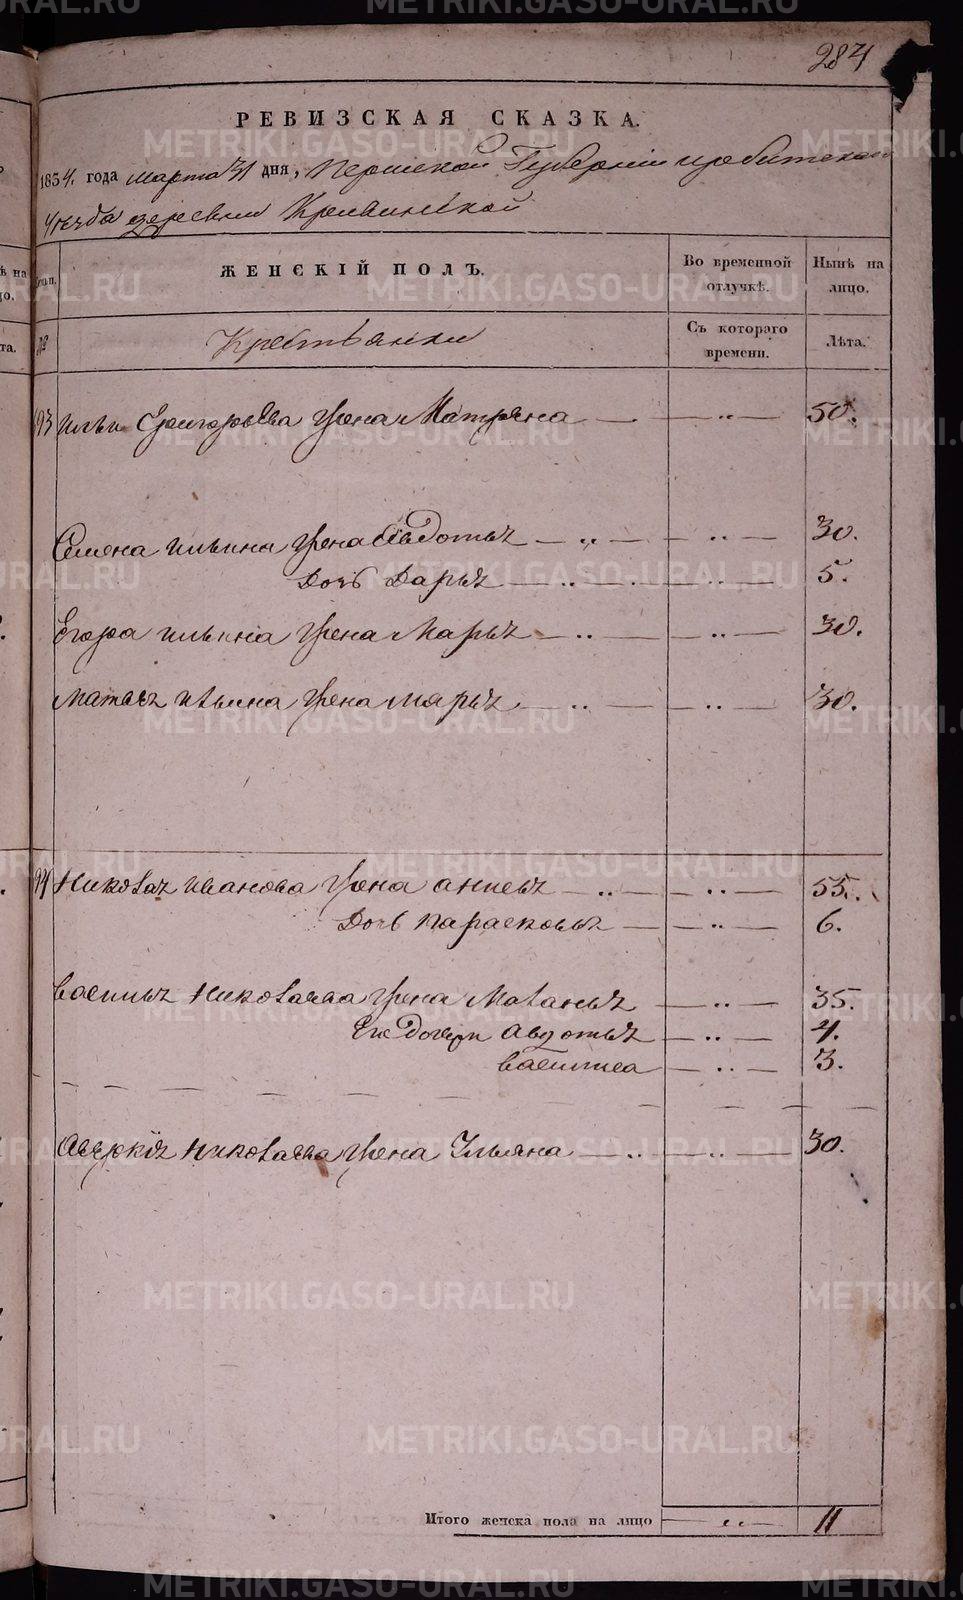 284
РЕВИЗСКАЯ СКАЗКА.
1854. года марта 31 дня, Пермской Губернiи ирбитскаго
Уезда деревни
на
цо.
та.
ЖЕНСКIЙ ПОЛЪ.
Во временной отлучкѣ.
Нынѣ на лицо.
№
Крестьянки
Съ котораго времени.
Лѣта.
ильи Григорьева жена Матряна — „ — 50.
Семена ильина жена Авдотья — „ — „ — 30.
Дочь Дарья — „ — „ — 5.
Егора ильина жена Марья — „ — „ — 30.
Матвея ильина жена марья — „ — „ — 30.
94 Николая иванова жена анисья — „ — „ — 55.
Дочь Парасковья — „ — 6.
василья Николаева жена Маланья — „ — 35.
Его Дочери Авдотья — „ — 4.
василиса — „ — 3.
Николаева жена Ульяна — „ — „ — 30.
Итого женска пола на лицо — „ — 11
METRIKI.GASO-URAL.RU